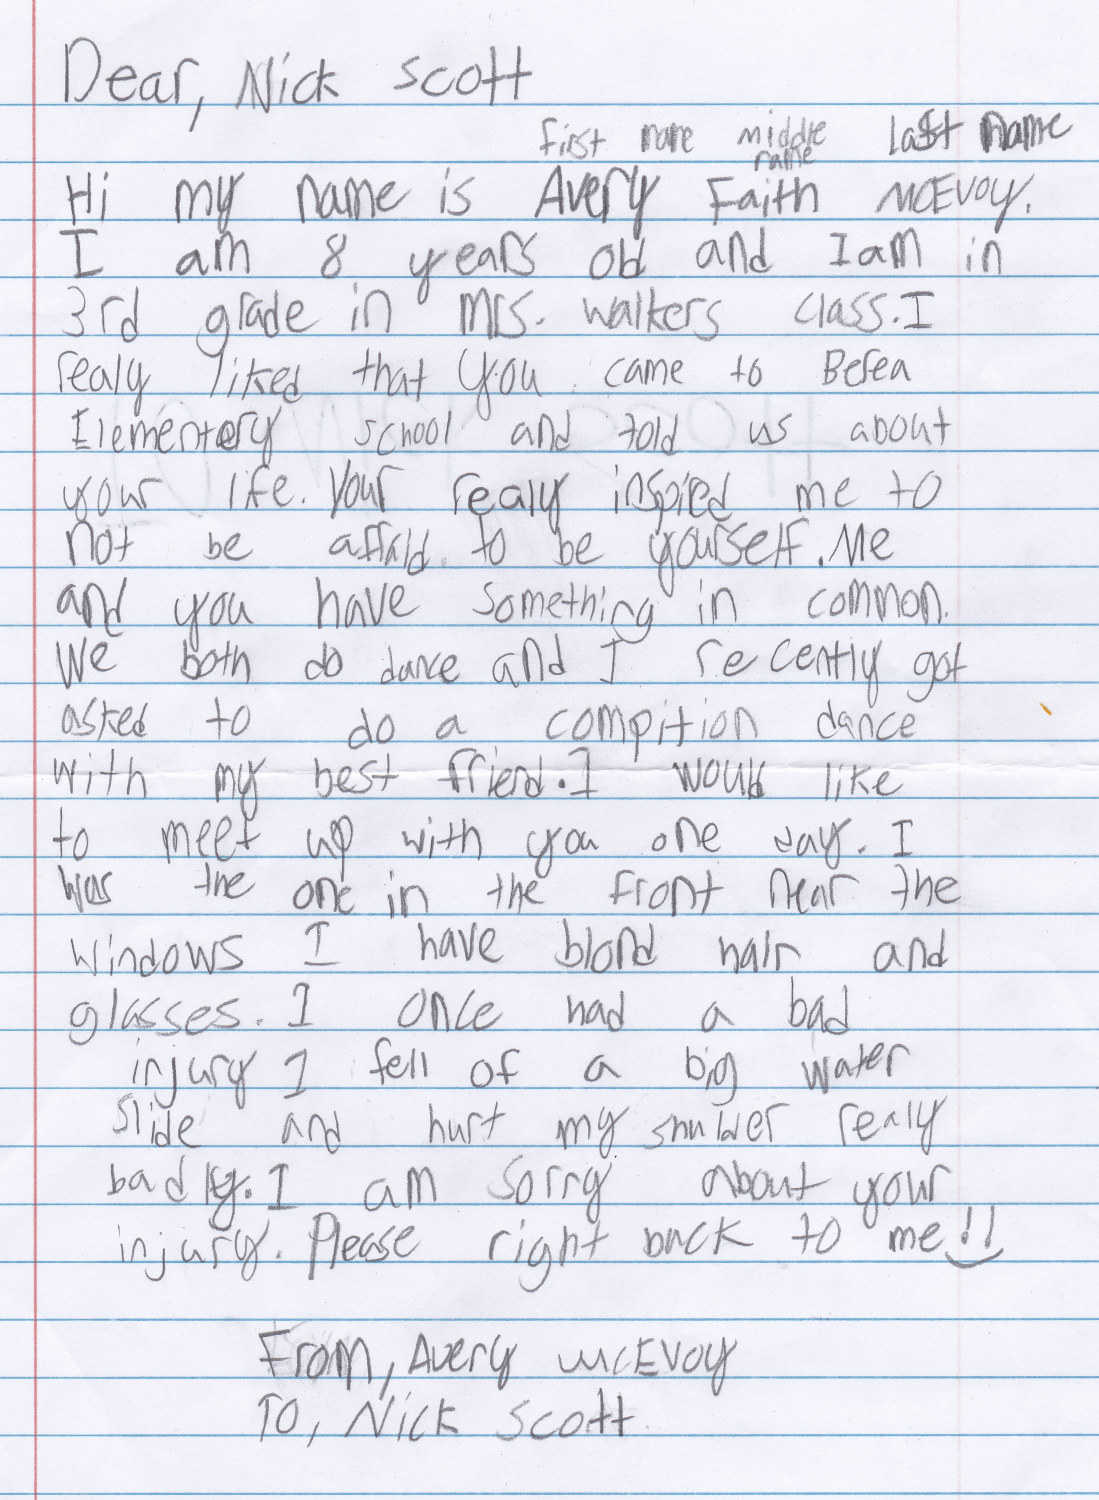 Dear, Nick Scott
first name middle name last name
Hi my name is Avery Faith McEvoy.
I am 8 years old and I am in
3rd grade in Mrs. walkers class. I
realy liked that you came to Berea
Elementery school and told us about
your life. Your realy inspired me to
not be affraid to be yourself. Me
and you have something in common.
We both do dance and I recently got
asked to do a compition dance
with my best friend. I would like
to meet up with you one day. I
was the one in the front near the
windows I have blond hair and
glasses. I once had a bad
injury I fell of a big water
slide and hurt my shulder realy
badly. I am sorry about your
injury. Please right back to me!!
From, Avery McEvoy
To, Nick Scott